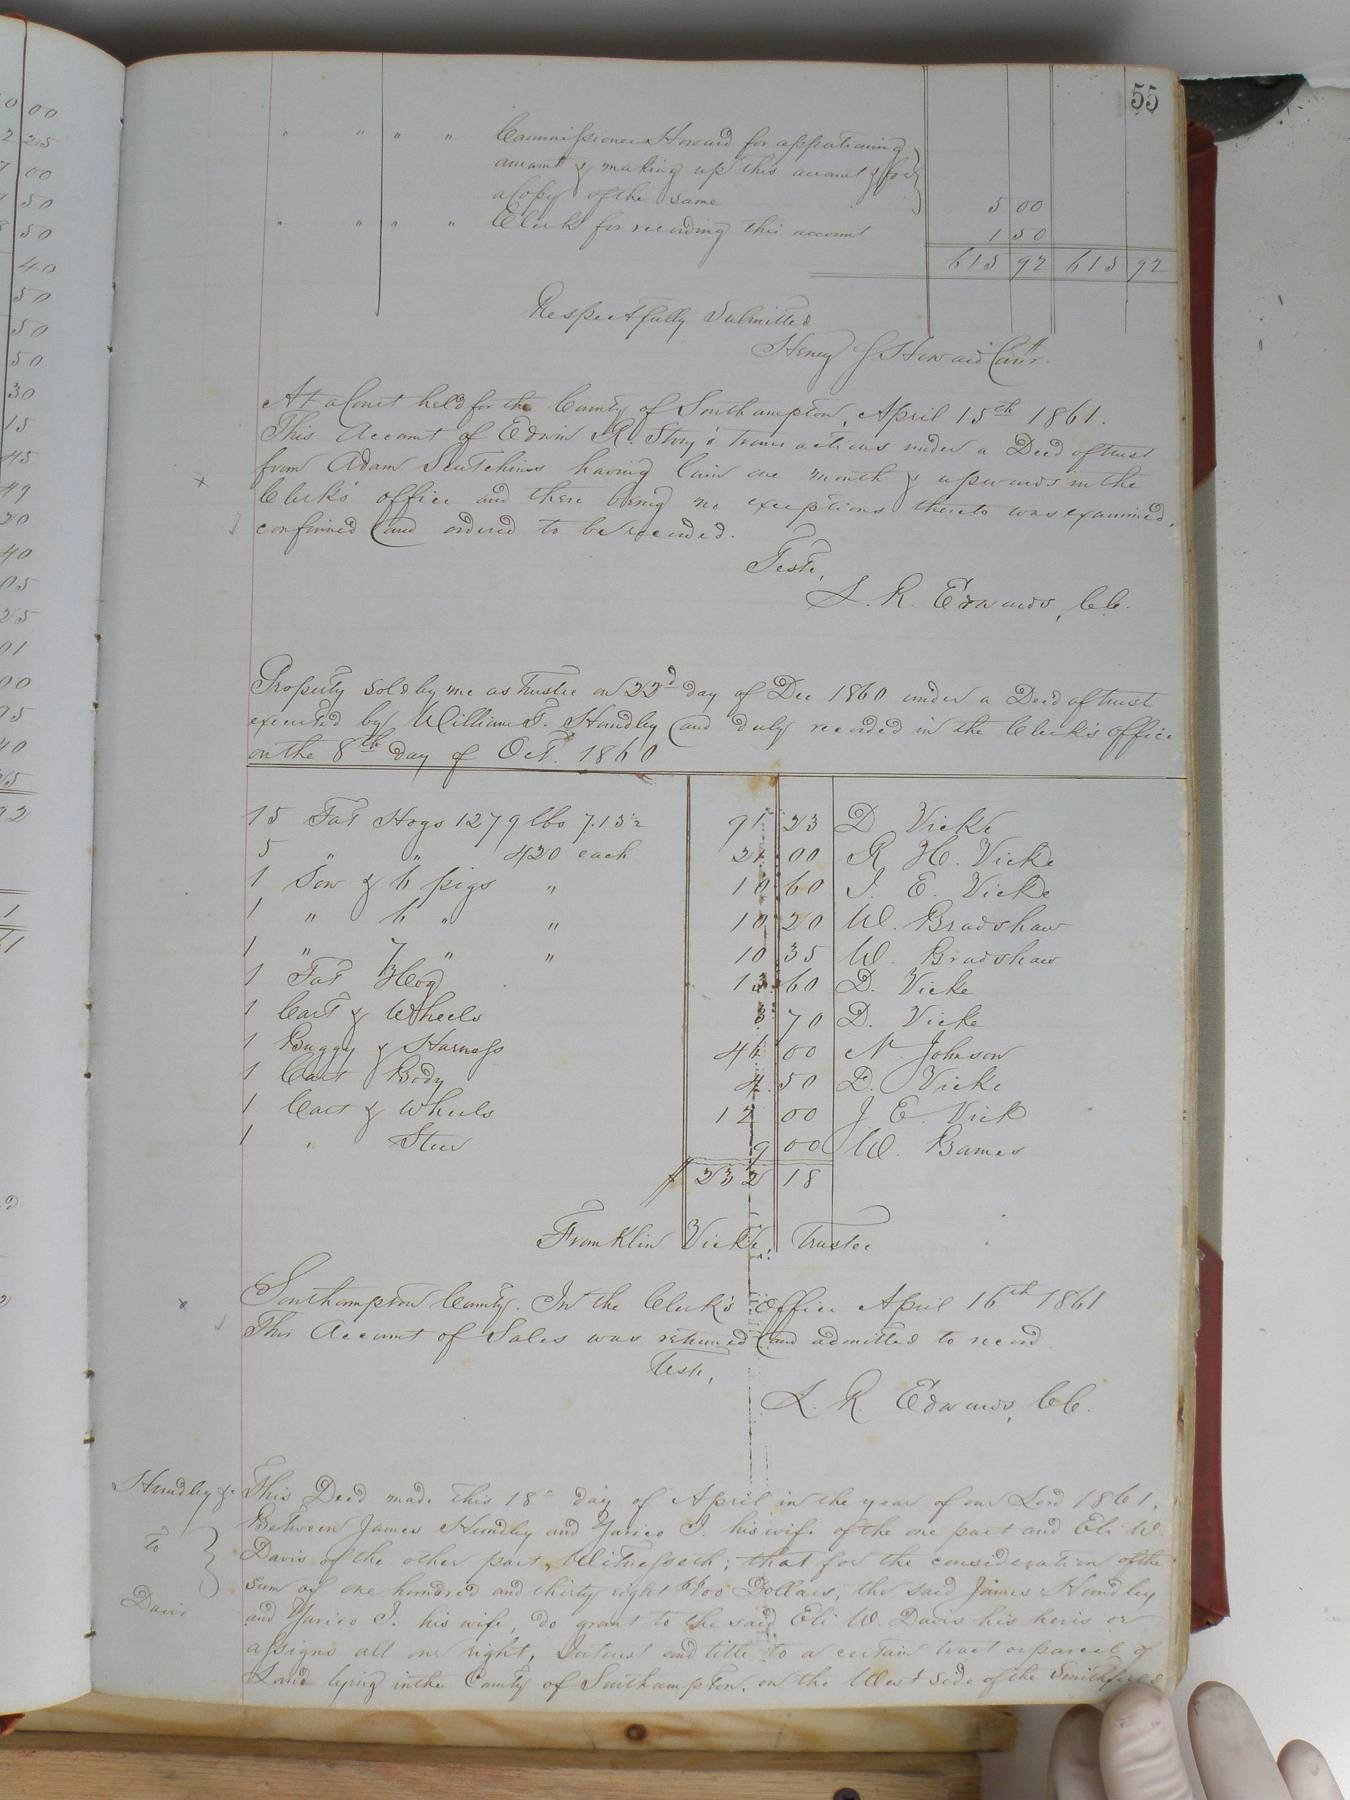 55
" " " " Commissioner Howard for apportioning
amount & making up this account & for
a Copy of the same 5 00
" " " " Clerk for recording this account 1 50
615 92 615 92
Respectfully Submitted
Henry Howard Comr.
At a Court held for the County of Southampton, April 15th 1861.
This Account of Edwin R. Story's transactions under a Deed of trust
from Adam having lain one month & upwards in the
Clerk's office and there being no exceptions thereto was examined,
confirmed and ordered to be recorded.
Teste,
L. R. Edwards, CC.
Property sold by me as Trustee on 22d day of Dec 1860 under a Deed of trust
executed by William T. Handley and duly recorded in the Clerk's office
on the 8th day of Oct. 1860
15 Fat Hogs 1279 lbs 91 23 D Vicke
5 " " 420 each 21 00 R H. Vicke
1 Sow & 6 pigs " 10 60 J. E. Vicke
1 " 6 " " 10 20 W. Bradshaw
1 " 7 " " 10 35 W. Bradshaw
1 Fat Hog 13 60 D. Vicke
1 Cart & Wheels 3 70 D. Vicke
1 Buggy & Harness 46 00 N. Johnson
1 Cart Body 4 50 D. Vicke
1 Cart & Wheels 12 00 J E Vick
1 " Steer 9 00 W. Barnes
$ 232 18
Franklin Vicke, Trustee
Southampton County. In the Clerk's Office April 16th 1861
This Account of Sales was returned and admitted to record
Teste,
L. R. Edwards, CC.
Handley &c
to
Davis
This Deed made this 18th day of April in the year of our Lord 1861.
Between James Handley and Yarico J. his wife of the one part and Eli W.
Davis of the other part, Witnesseth; that for the consideration of the
sum of one hundred and thirty eight Dollars, the said James Handley
and Yarico J. his wife, do grant to the said Eli W. Davis his heris or
assigns all our right, Interest and title to a certain tract or parcel of
Land lying in the County of Southampton, on the West side of the Smithfield